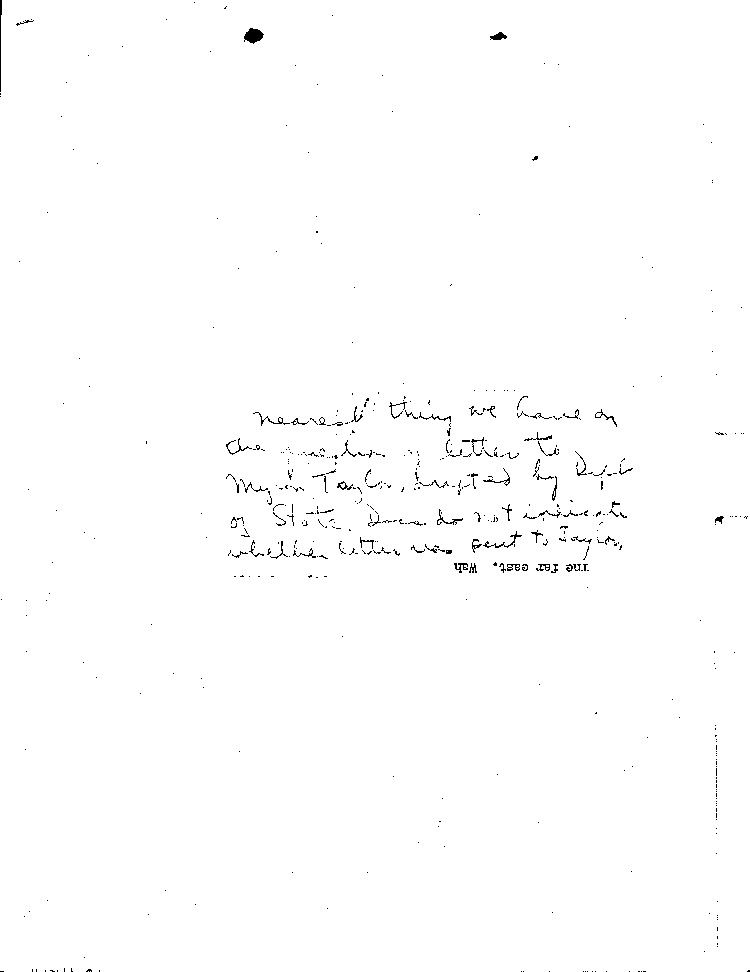 nearest" thing we have on
the question of letter to
Myron Taylor, drafted by Dept
of State. Docs do not indicate
whether letter was sent to Taylor,
The far east. Wsh